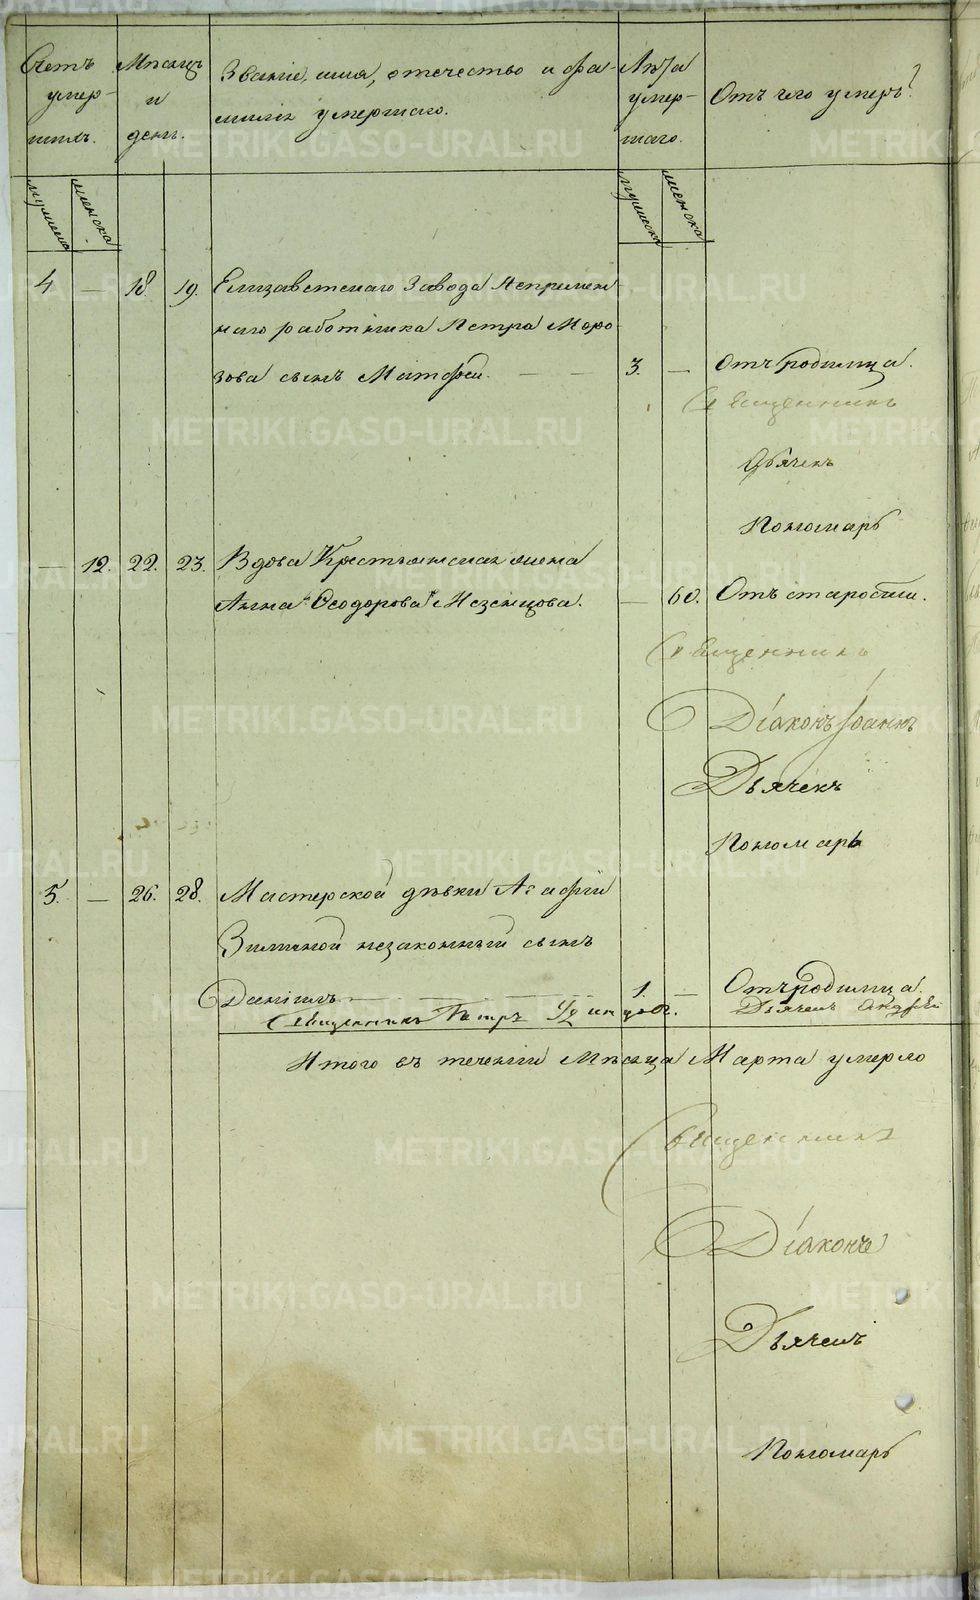 Счетъ умер-
шихъ.
Мѣсяцъ
и
день.
Званіе, имя, отчество и фа-
милія умершаго.
Лѣта
умер-
шаго.
Отъ чего умеръ?
мужеска
женска
мужеска
женска
4 — 18. 19. Елизаветскаго Завода Непремѣн-
наго работника Петра Моро-
зова сынъ Матфей. — — 3. — Отъ родимца.
Священникъ
Дьячекъ
Пономарь
— 12. 22. 23. Вдова Крестьянская жена
Анна Ѳеодорова — 60. Отъ старости.
Священникъ
Діаконъ Іоаннъ
Дьячекъ
Пономарь
5. — 26. 28. Мастерской дѣвки Агафіи
Зиминой незаконный сынъ
Даніилъ — — — 1. — Отъ родимца.
Священникъ Петръ Удинцовъ. Дьячекъ Андрей
Итого въ теченіи Мѣсяца Марта умерло
Священникъ
Діаконъ
Дьячекъ
Пономарь
METRIKI.GASO-URAL.RU